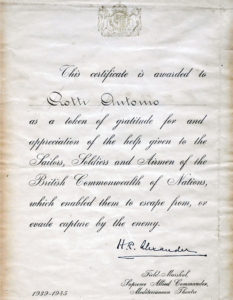 This certificate is awarded to
Crotti Antonio
as a token of gratitude for and
appreciation of the help given to the
Sailors, Soldiers and Airmen of the
British Commonwealth of Nations,
which enabled them to escape from, or
evade capture by the enemy.
H.R. Alexander
Field Marshal,
Supreme Allied Commander,
Mediterranean Theatre
1939-1945